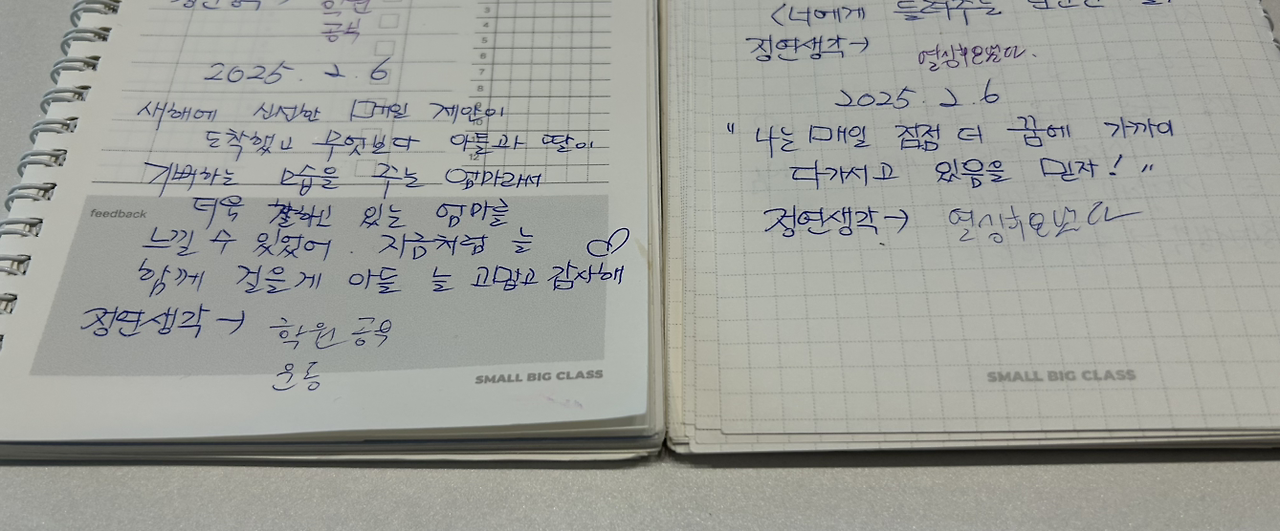 정연생각→ 학원
공식
3
4
5
6
7
8
2025. 2. 6
새해에 신선한 매일 제안이
도착했고 무엇보다 아들과 딸이
기뻐하는 모습을 주는 엄마라서
더욱 잘하고 있는 엄마를
feedback
느낄 수 있었어. 지금처럼 늘
함께 걸을게 아들 늘 고맙고 감사해
정연생각→ 학원 공욕
운동
SMALL BIG CLASS
<너에게 들려주는
정연생각→
2025. 2. 6
" 나는 매일 점점 더 꿈에 가까이
다가서고 있음을 믿자! "
정연생각→
SMALL BIG CLASS